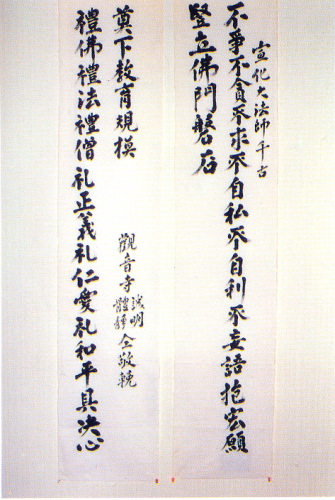 宣化大法師千古
不爭不貪不求不自私不自利不妄語抱宏願
豎立佛門磐石
禮佛禮法禮僧礼正義礼仁愛礼和平具决心
奠下教育規模
觀音寺 體靜 仝敬輓